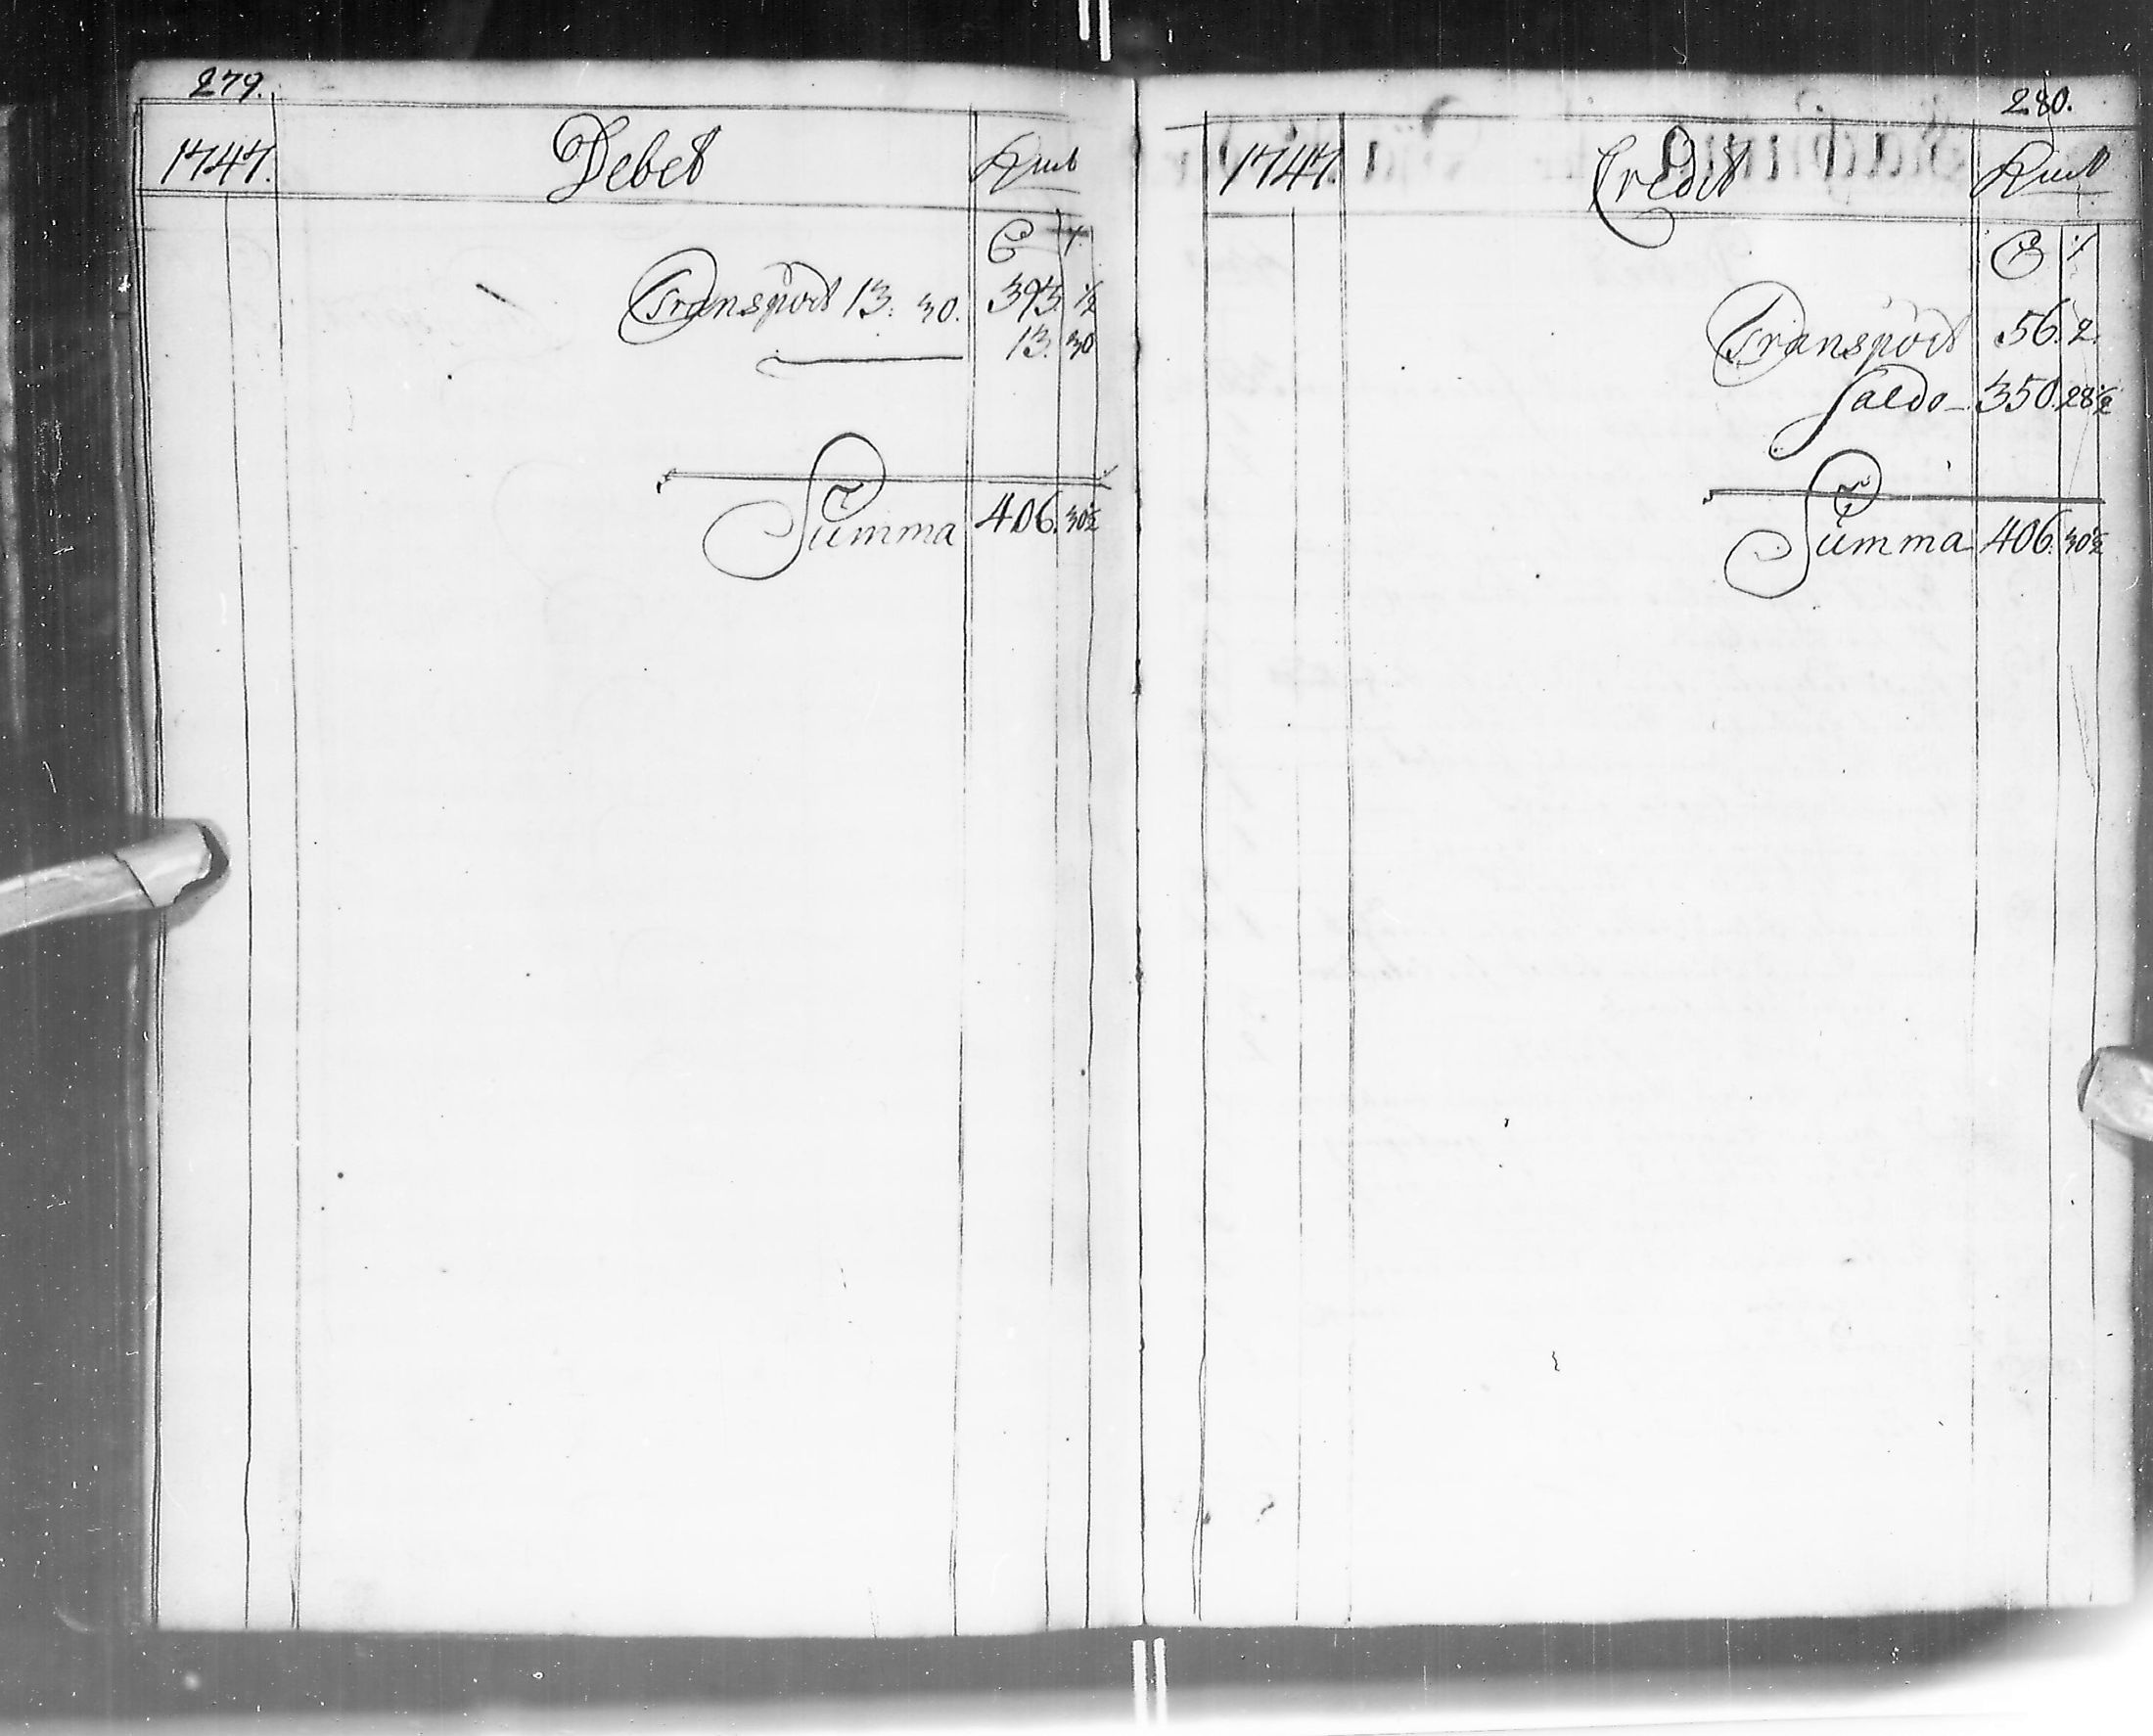 279.
1747. Debet
Transport 13. 30. 393. ½
13. 30
Summa 406. 30½
280.
1747. Credit
Transport 56. 2.
Saldo 350. 28½
Summa 406. 30½